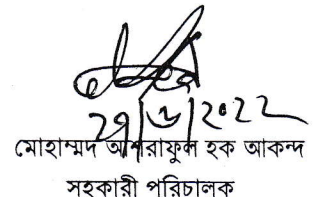 ২৭|৬|২০২২
মোহাম্মদ আশরাফুল হক আকন্দ
সহকারী পরিচালক